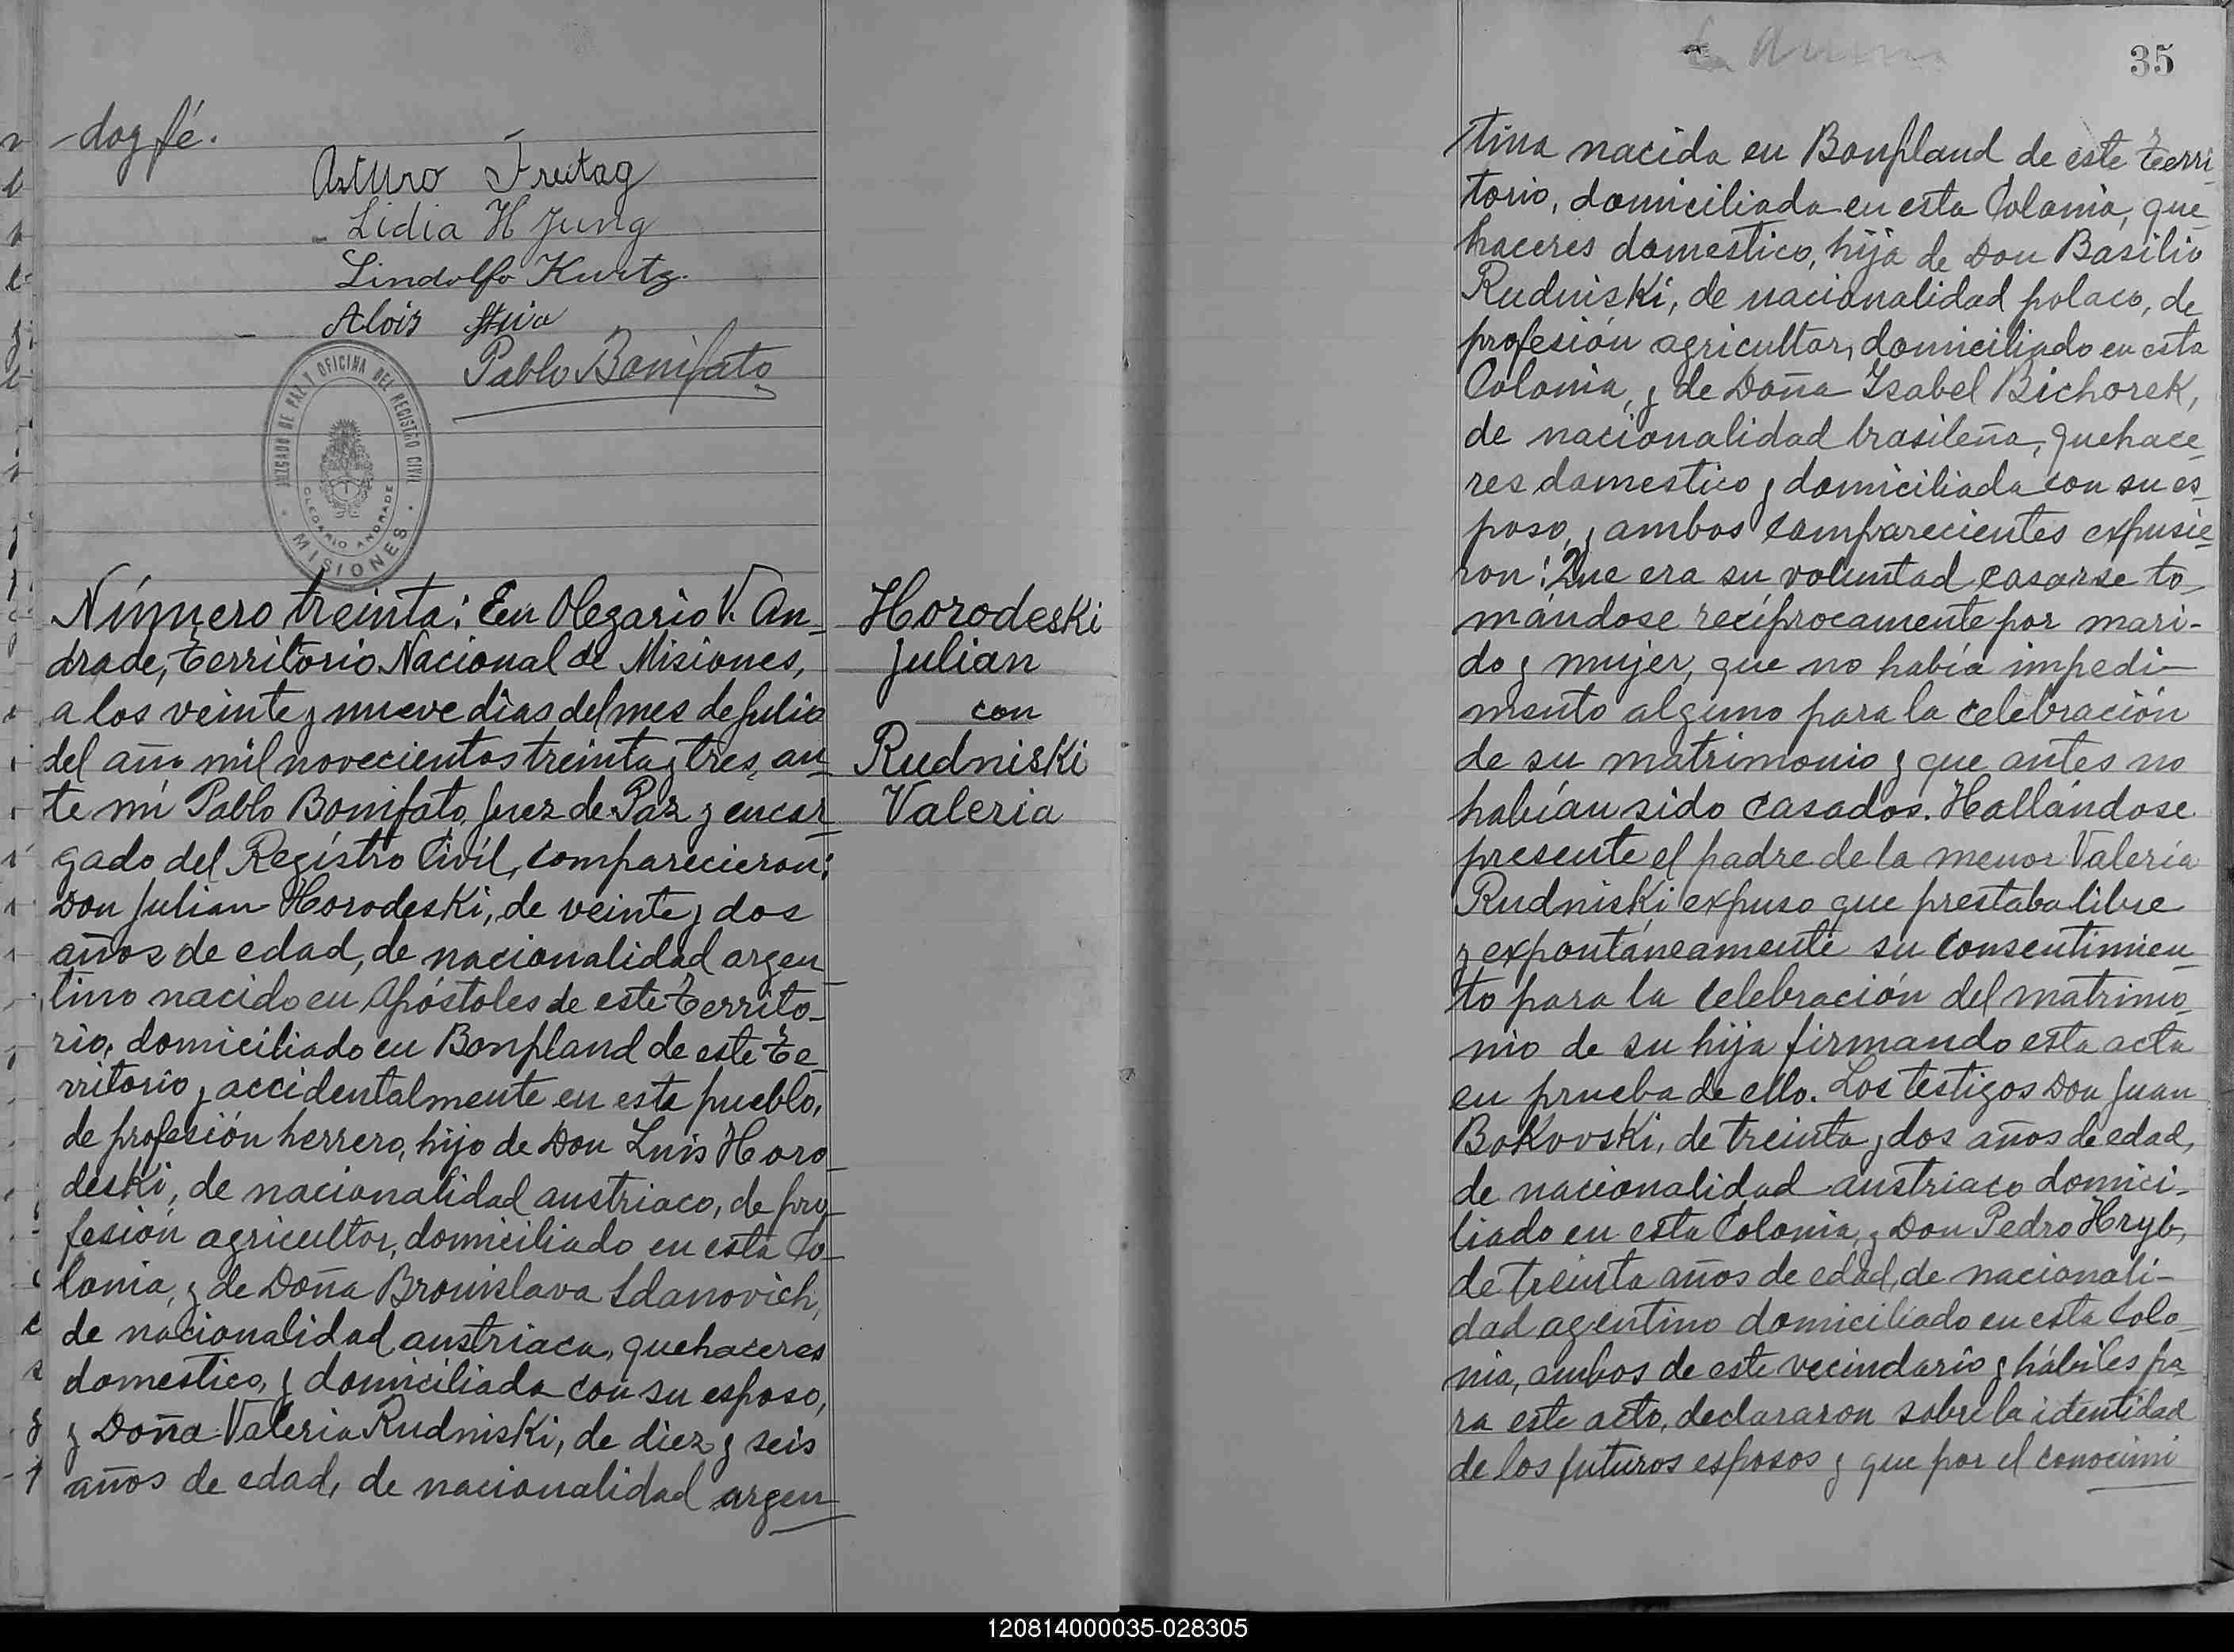 doy fé.
Arturo Freitag
Lidia H Jung
Lindolfo Kurtz.
Alois
Pablo Bonifato
JUZGADO DE PAZ Y OFICINA DEL REGISTRO CIVIL
OLEGARIO ANDRADE
MISIONES
Número treinta: En Olegario V. An-
drade, territorio Nacional de Misiones,
a los veinte y nueve días del mes de Julio
del año mil novecientos treinta y tres, an-
te mí Pablo Bonifato, Juez de Paz y encar-
gado del Registro Civil, comparecieron:
Don Julian Horodeski, de veinte y dos
años de edad, de nacionalidad argen-
tino nacido en Apóstoles de este territo-
rio, domiciliado en Bonpland de este te-
rritorio y accidentalmente en este pueblo,
de profesión herrero, hijo de Don Luis Horo-
deski, de nacionalidad austriaco, de pro-
fesión agricultor, domiciliado en esta Co-
lonia, y de Doña Bronislava Sdanovich,
de nacionalidad austriaca, quehaceres
domestico, y domiciliada con su esposo,
y Doña Valeria Rudniski, de diez y seis
años de edad, de nacionalidad argen
Horodeski
Julian
con
Rudniski
Valeria
35
tina nacida en Bonpland de este terri-
torio, domiciliada en esta Colonia, que-
haceres domestico, hija de Don Basilio
Rudniski, de nacionalidad polaco, de
profesión agricultor, domiciliado en esta
Colonia, y de Doña Isabel Bichorek,
de nacionalidad brasileña, quehace-
res domestico y domiciliada con su es-
poso, y ambos comparecientes expusie-
ron: Que era su voluntad casarse to-
mándose recíprocamente por mari-
do y mujer, que no había impedi-
mento alguno para la celebración
de su matrimonio y que antes no
habían sido casados. Hallándose
presente el padre de la menor Valeria
Rudniski expuso que prestaba libre
y expontáneamente su consentimien-
to para la celebración del matrimo-
nio de su hija firmando esta acta
en prueba de ello. Los testigos Don Juan
Bokovski, de treinta y dos años de edad,
de nacionalidad austriaco domici-
liado en esta Colonia, y Don Pedro Hryb,
de treinta años de edad, de nacionali-
dad agentino domiciliado en esta Colo-
nia, ambos de este vecindario y hábiles pa-
ra este acto, declararon sobre la identidad
de los futuros esposos y que por el conocimi
120814000035-028305